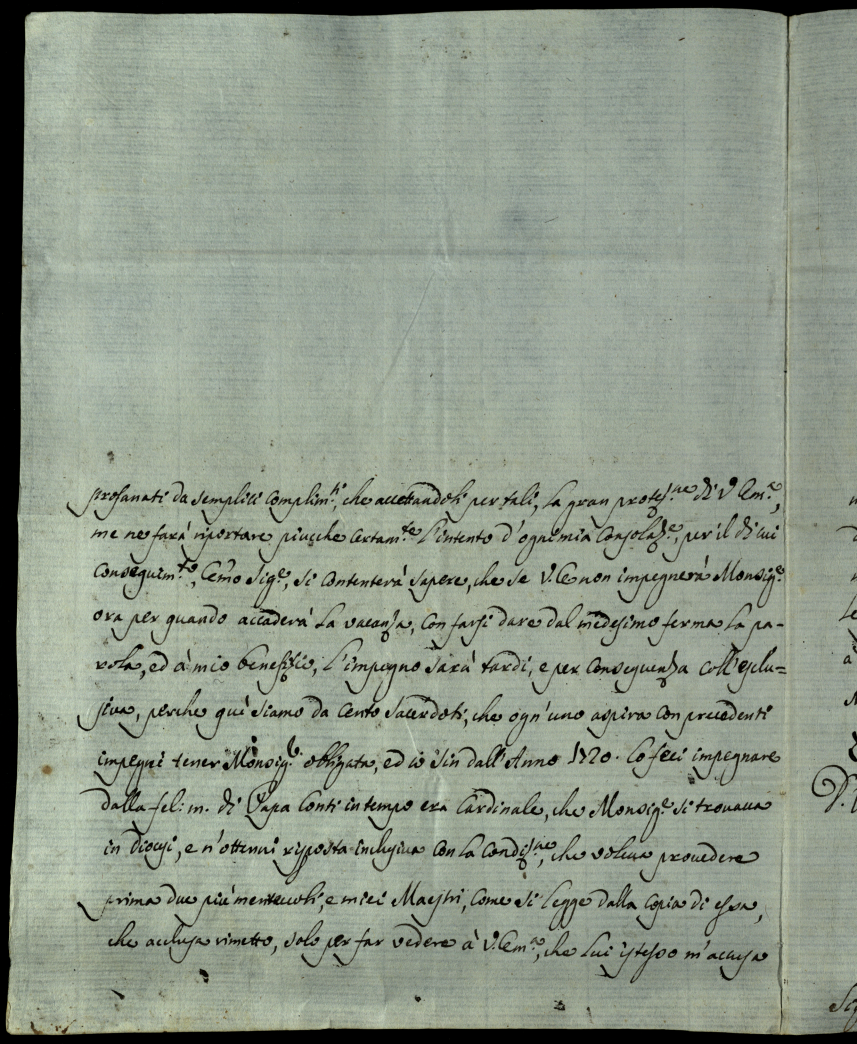 profanati da semplici complim.ti, che accettandoli per tali, la gran protez.ne di V. Em.a,
me ne farà riportare piucche certam.te l'intento d'ogni mia Consolaz.e, per il di cui
Conseguim.to, Em̃o Sig.e, si contenterà sapere, che se V.E. non impegnerà Monsig.e
ora per quando accaderà la vacanza, con farsi dare dal medesimo ferma la pa-
rola, ed à mio benefizio, l'impegno sarà tardi, e per conseguenza coll'esclu=
siva, perche quì siamo da cento sacerdoti, che ogn'uno aspira con precedenti
impegni tener Monsig.e obbligato, ed io sin dall'Anno 1720. lo feci impegnare
dalla fel: m. di Papa Conti in tempo era Cardinale, che Monsig.e si trovava
in diocesi, e n'ottenni risposta inclusiva con la condiz.ne, che voleva provedere
prima due più meritevoli, e miei Maestri, come si legge dalla copia di essa,
che acclusa rimetto, solo per far vedere à V. Em.a, che lui istesso m'accusa